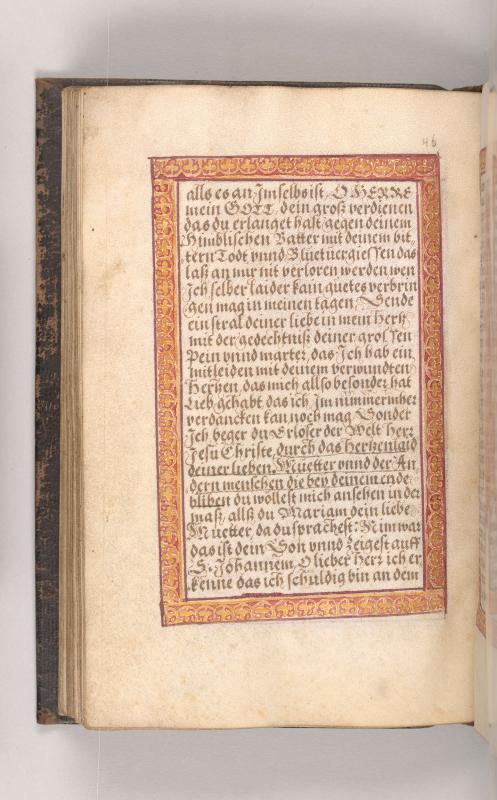 46
alls es an Jm selbs ist, O HERRE
mein GOTT, dein groß verdienen
das du erlanget hast gegen deinem
Himblischen Vatter mit deinem bit
tern Todt, vnnd Bluetuergiessen das
laß an mir nit verloren werden wen
Jch selber laider kain guetes verbrin
gen mag in meinen tagen, Sende
ein stral deiner liebe in mein Hertz
mit der gedechtnuß deiner grossen
Pein vnnd marter, das Jch hab ein
mitleiden mit deinem verwundten
Hertzen, das mich allso besonder hat
Lieb gehabt das ich Jm nimmermher
verdancken kan noch mag Sonder
Jch beger du Erloser der Welt Herr
Jesu Christe, durch das hertzenlaid
deiner lieben Muetter vnnd der An
dern menschen die bey deinem ende
bliben du wollest mich ansehen in der
maß, allß du Mariam dein liebe
Muetter, da du sprachest: Nim war
das ist dein Son vnnd zeigest auff
S. Johannem, O lieber Herr ich er
kenne das ich schuldig bin an dem